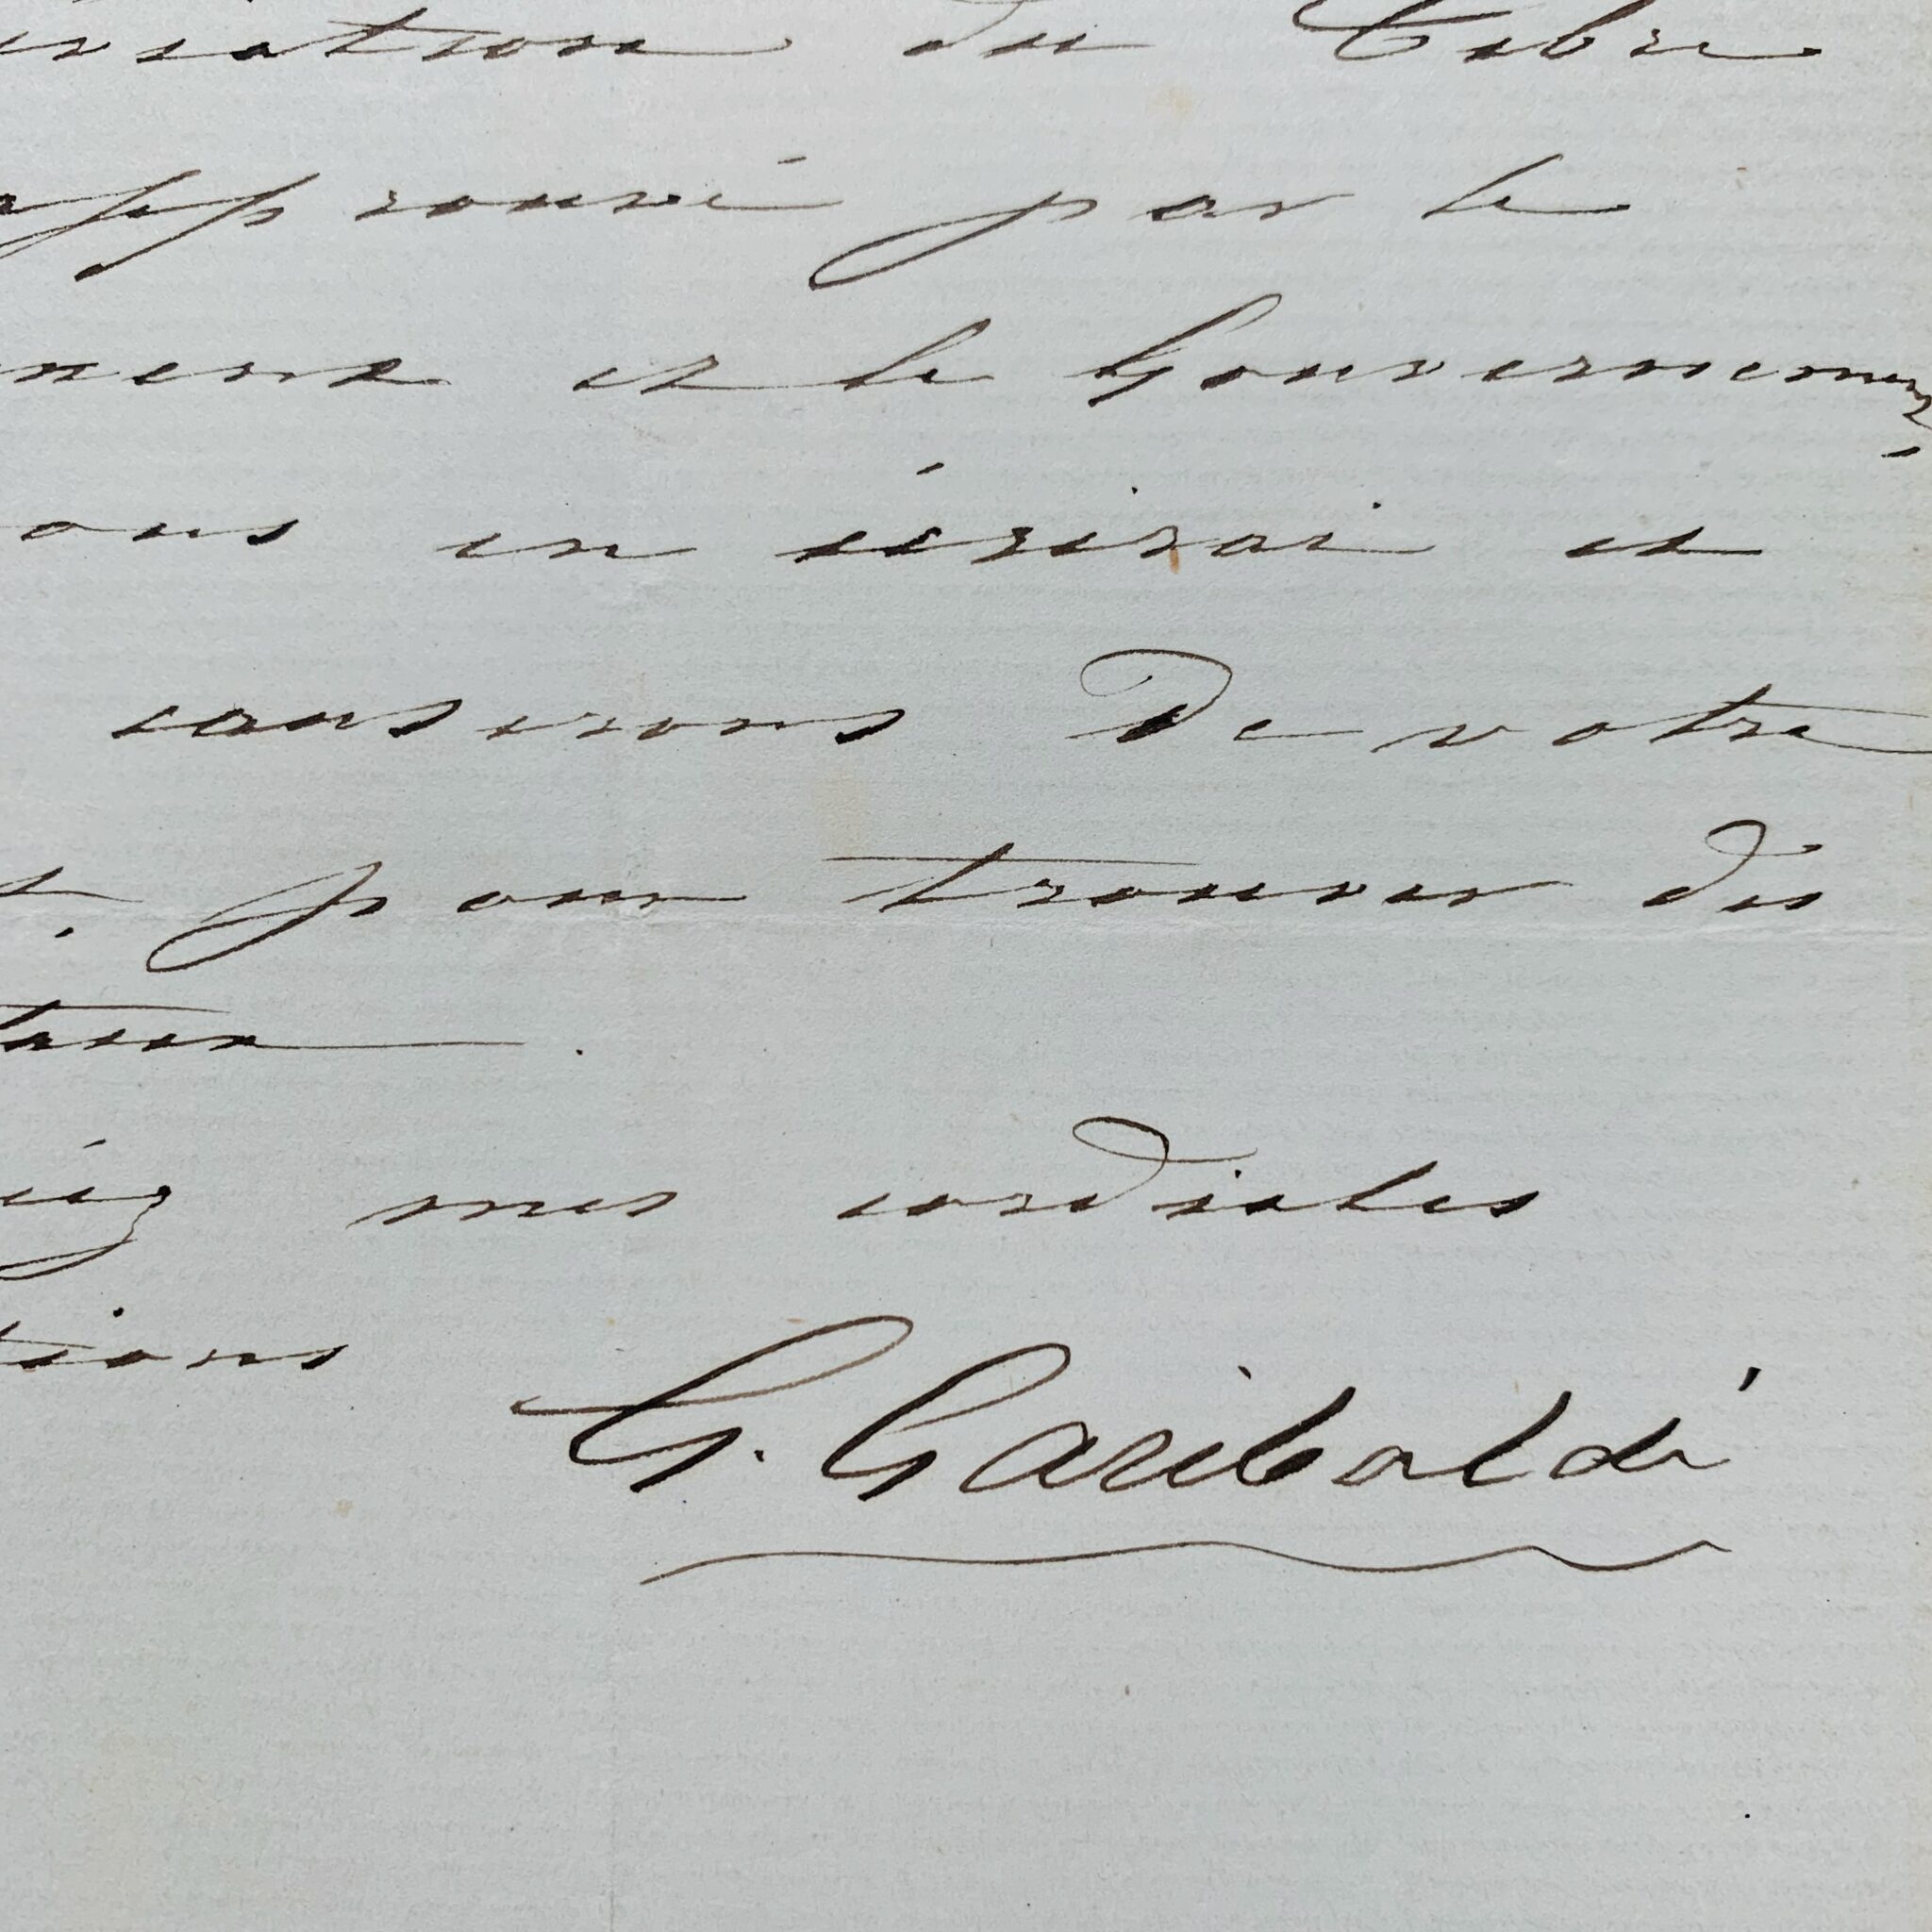 viation du Tibre
approuvé par le
ment et le Gouvernement,
ous en écrirai et
causerons de votre
t. pour trouver des
taux.
éez mes cordiales
tions
G. Garibaldi